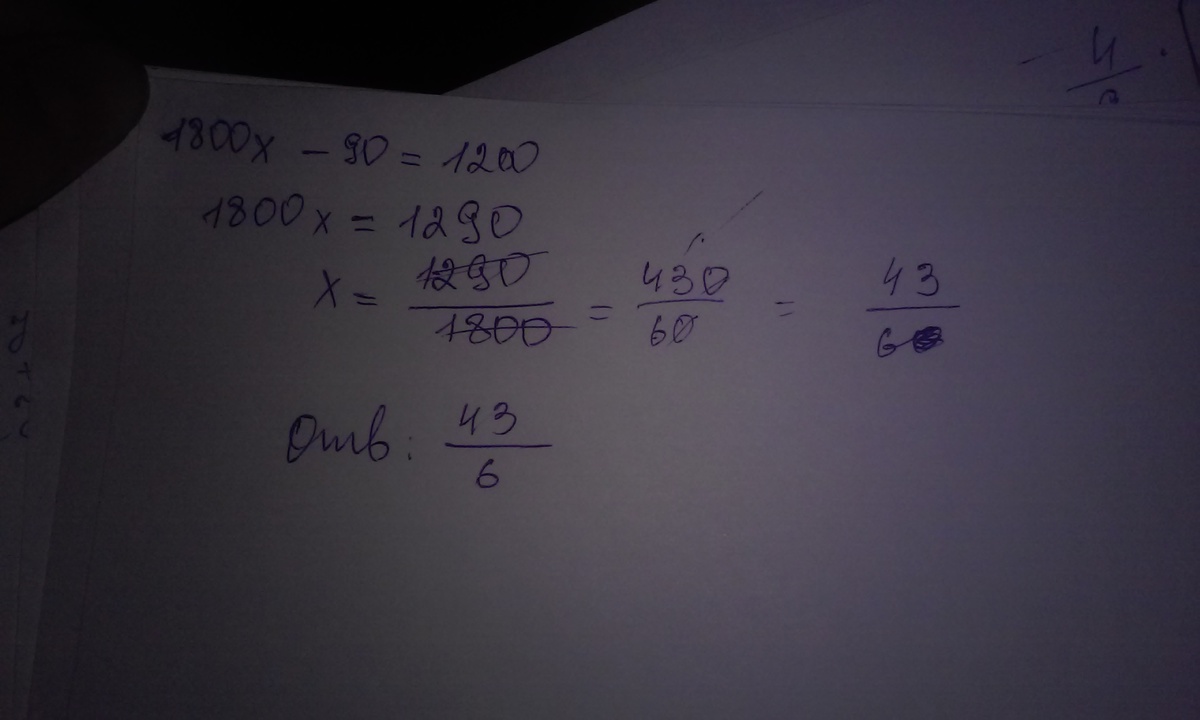 1800x - 90 = 1200
1800x = 1290
x = 1290/1800 = 430/60 = 43/6
Отв: 43/6
4